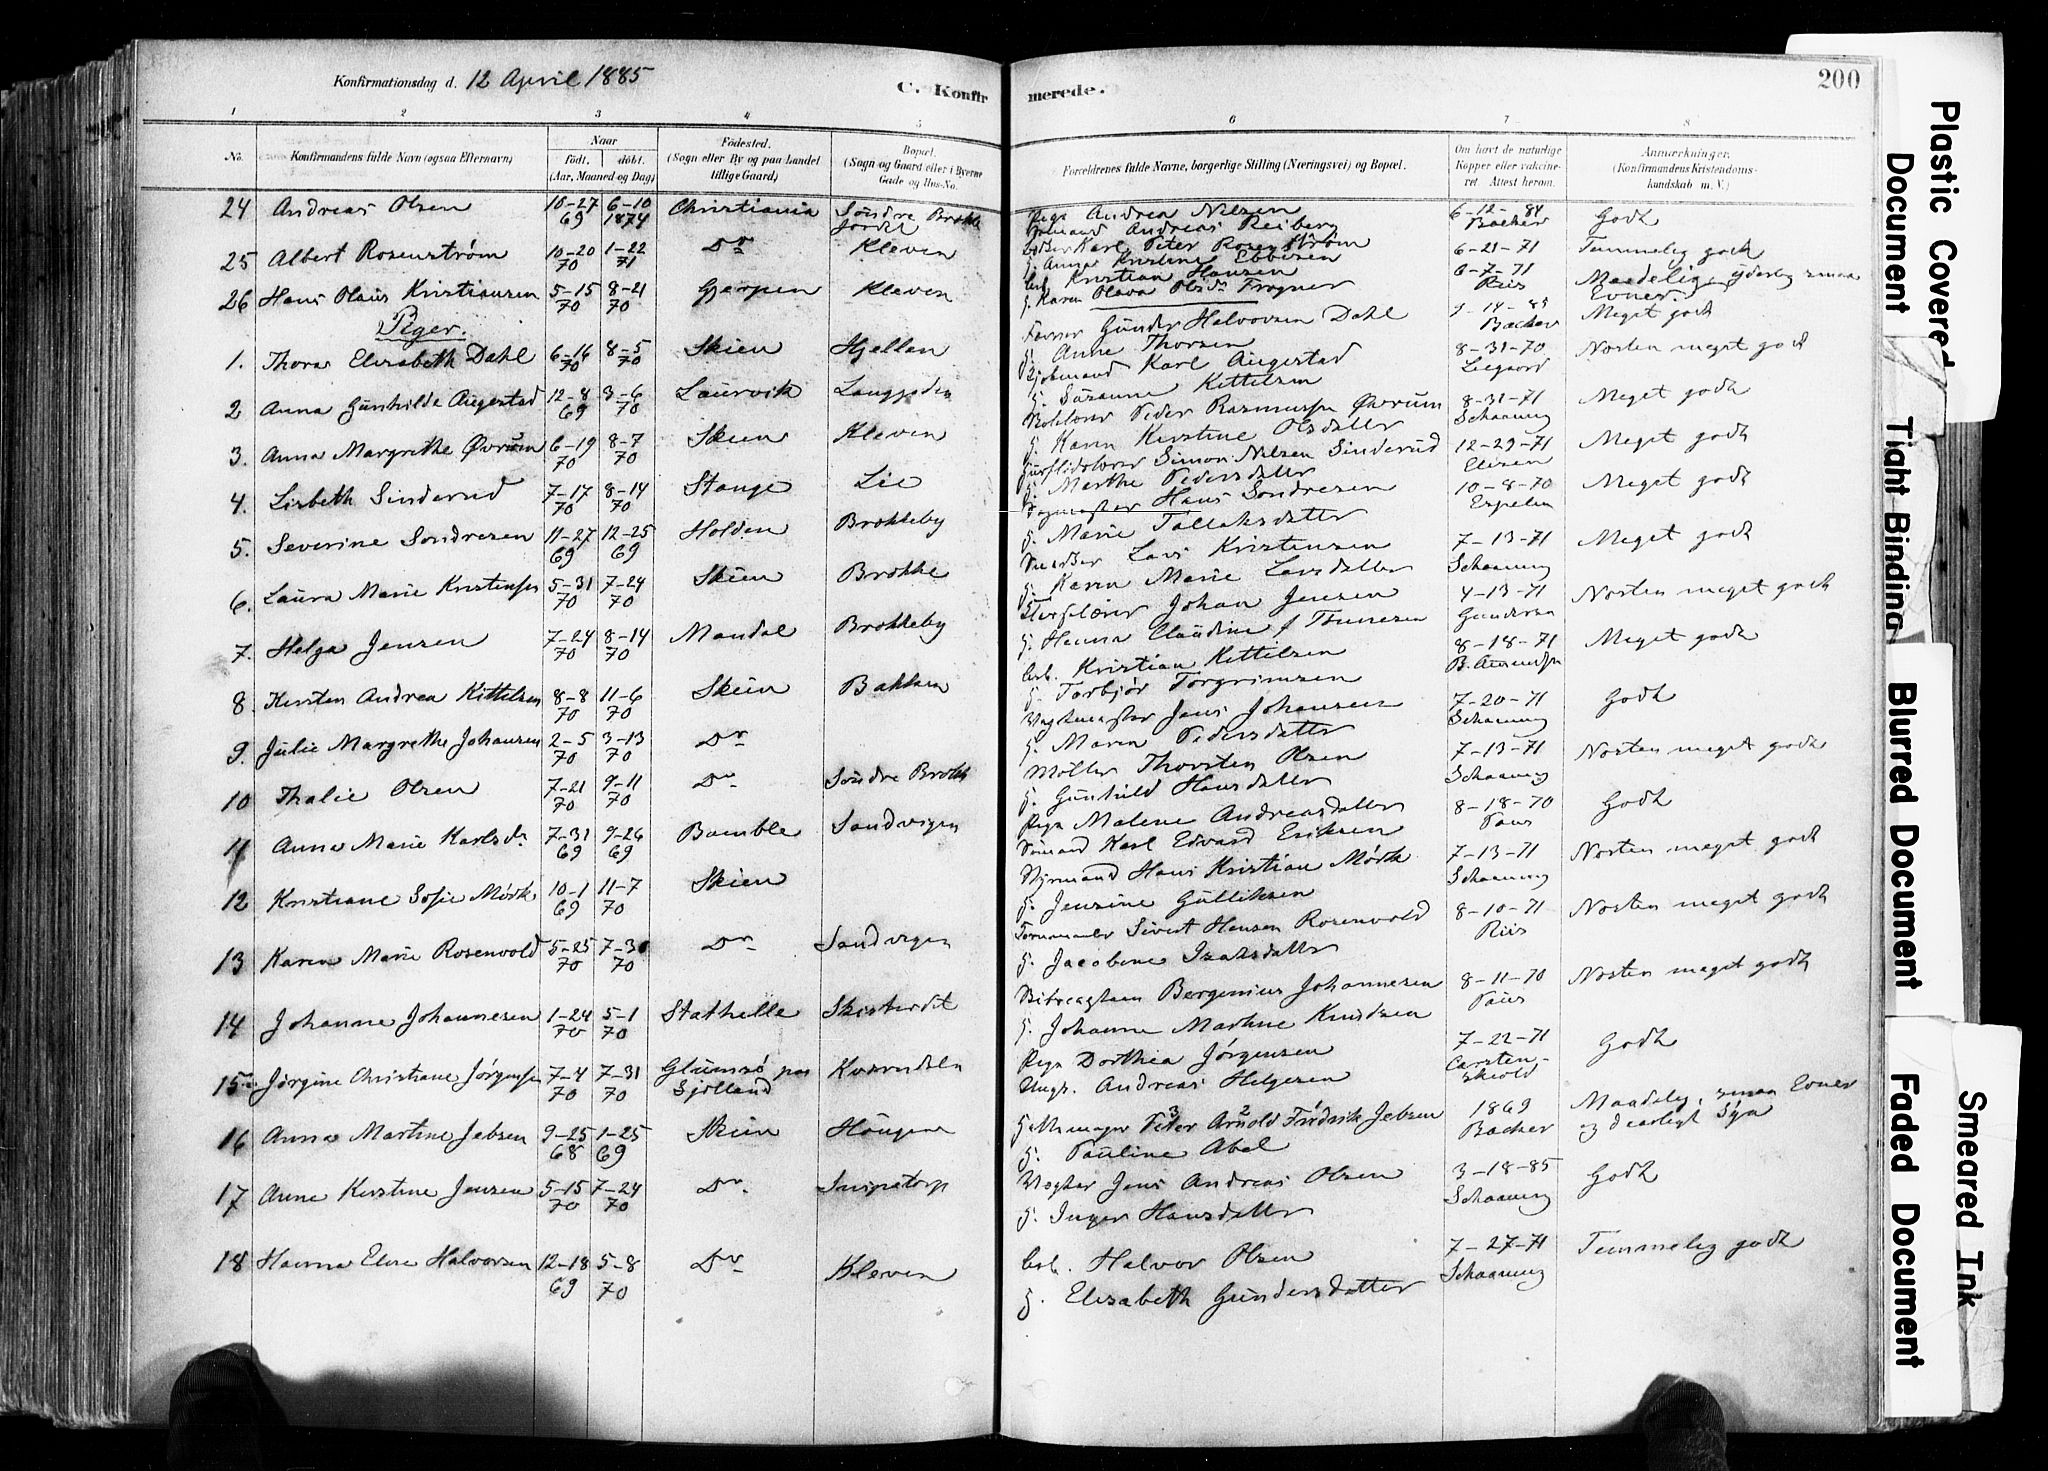 Konfirmationsdag d. 12 April 1885
C. Konfirmerede.
200
1 2 3 4 5 6 7 8
No.
Konfirmandens fulde Navn (ogsaa Efternavn)
Naar
født. døbt.
(Aar, Maaned og Dag)
Fødested.
(Sogn eller By og paa Landet
tillige Gaard)
Bopæl.
(Sogn og Gaard eller i Byerne
Gade og Hus-No.
Forældrenes fulde Navne, borgerlige Stilling (Næringsvei) og Bopæl.
Om havt de naturlige
Kopper eller vakcine-
ret Attest herom.
Anmærkninger.
(Konfirmandens Kristendoms-
kundskab m. V.)
24 Andreas Olsen 10-27 69 6-10 1874 Christiania Søndre Brekke Jordet
Pige Andrea Nilsen
Andreas Reiberg
6-12-84 Backer Godt
25 Albert Rosenstrøm 10-20 70 1-22 71 Do Kleven
Karl Peter Rosenstrøm
Anna Kristine Ebbesen
6-21-71 Temmelig godt
26 Hans Olaus Kristiansen 5-15 70 8-21 70 Gjerpen Kleven
Arb. Kristian Hansen
H. Karen Olava Olsdr Frogner
6-7-71 Riis Maadelig, yderlig smaa Evner.
Piger.
1. Thora Elisabeth Dahl 6-16 70 8-5 70 Skien Hjellen
Gunder Halvorsen Dahl
H. Anne Thorsen
9-14-85 Backer Meget godt
2 Anna Gunhilde Augestad 12-8 69 3-6 70 Laurvik
Karl Augestad
H. Susanne Kittelsen
8-31-70 Liegaard Næsten meget godt
3. Anna Margrethe Øvrum 6-19 70 8-7 70 Skien Kleven
Peder Rasmussen Øvrum
H. Karen Kirstine Olsdatter
8-31-71 Schaaning Meget godt
4. Lisbeth Sinderud 7-17 70 8-14 70 Stange Lie
Simon Nilsen Sinderud
H. Marthe Pedersdatter
12-29-71 Meget godt
5. Severine Sondresen 11-27 69 12-25 69 Holden Brekkeby
Hans Sondresen
H. Marie Tollaksdatter
10-8-70 Espelin Meget godt
6. Laura Marie Kristensen 5-31 70 7-24 70 Skien Brekke
Lars Kristensen
H. Karen Marie Larsdatter
7-13-71 Schaaning Meget godt
7. Helga Jensen 7-24 70 8-14 70 Mandal Brekkeby
Johan Jensen
H. Hanna Claudine f. Tønnesen
4-13-71 Gundersen Næsten meget godt
8. Kirsten Andrea Kittelsen 8-8 70 11-6 70 Skien Bakken
Arb. Kristian Kittelsen
H. Torbjør Torgrimsen
8-18-71 B. Amundsen Meget godt
9. Julie Margrethe Johansen 2-5 70 3-13 70 Do
Vagtmester Jens Johansen
H. Maren Pedersdatter
7-20-71 Schaaning Godt
10 Thalie Olsen 7-21 70 9-11 70 Do Søndre Brekke
Møller Thorsten Olsen
H. Gunhild Hansdatter
7-13-71 Schaaning Næsten meget godt
11 Anna Marie Karlsdr 7-31 69 9-26 69 Bamble Sandvigen
Pige Malene Andreasdatter
Sømand Karl Edvard Eriksen
8-18-70 Paus Godt
12 Kristiane Sofie Mørk 10-1 69 11-7 70 Skien
Styrmand Hans Kristian Mørk
H. Jensine Gulliksen
7-13-71 Schaaning Næsten meget godt
13 Karen Marie Rosenvold 5-25 70 7-30 70 Do Sandvigen
Tømmerm. Sivert Hansen Rosenvold
H. Jacobine Isaksdatter
8-10-71 Riis Næsten meget godt
14 Johanne Johannesen 1-24 70 5-1 70 Stathelle
Bergenius Johannesen
H. Johanne Martine Knudsen
8-11-70 Paus Næsten meget godt
15 Jørgine Christiane Jørgensen 7-4 70 7-31 70 Glumsø paa Sjælland Kværndalen
Pige Dorthea Jørgensen
Ungk. Andreas Helgesen
7-22-71 Carstenskiold Godt
16 Anna Martine Jebsen 9-25 68 1-25 69 Skien Haugen
Peter Arnold Fredrik Jebsen
H. Pauline Abel
1869 Backer Maadelig, smaa Evner og daarligt Syn
17 Anne Kirstine Jensen 5-15 70 7-24 70 Do Snipetorp
Vægter Jens Andreas Olsen
H. Inger Hansdatter
3-18-85 Schaaning Godt
18 Hanna Elise Halvorsen 12-18 69 5-8 70 Do Kleven
Arb. Halvor Olsen
H. Elisabeth Gundersdatter
7-27-71 Schaaning Temmelig godt
Plastic Covered Document
Tight Binding
Blurred Document
Faded Document
Smeared Ink